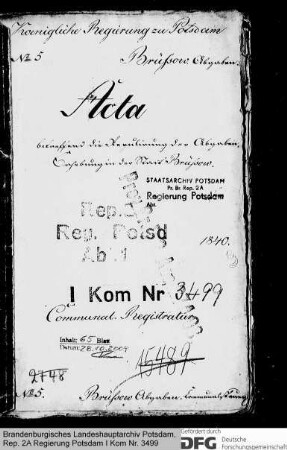 Koenigliche Regirung zu Potsdam
No 5. Brüssow. Abgaben.
Acta
betreffend die Regulirung der Abgaben
Erhebung in der Stadt Brüssow.
STAATSARCHIV POTSDAM
Pr. Br. Rep. 2A
Regierung Potsdam
Abt.
Rep.
Reg. Potsd
Ab. 1
1840.
I Kom Nr 3499
Communal. Registratur
Inhalt: 65 Blatt
Datum: 28.10.2004
15489
2748
No 5. Brüssow Abgaben.
Brandenburgisches Landeshauptarchiv Potsdam,
Rep. 2A Regierung Potsdam I Kom Nr. 3499
Gefördert durch
DFG Deutsche
Forschungsgemeinschaft